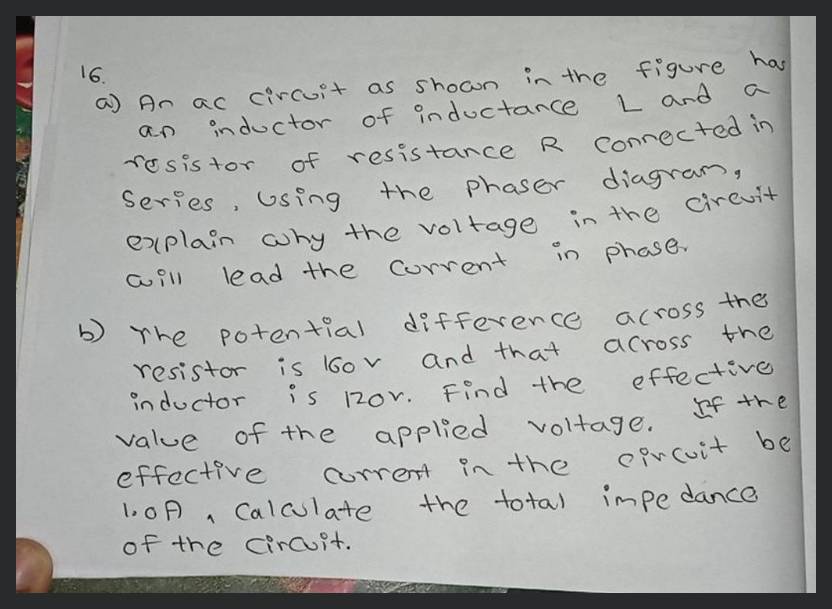 16.
a) An ac circuit as shown in the figure has
an inductor of inductance L and a
resistor of resistance R connected in
series, using the phaser diagram,
explain why the voltage in the circuit
will lead the current in phase.
b) The potential difference across the
resistor is 160V and that across the
inductor is 120V. Find the effective
value of the applied voltage. If the
effective current in the circuit be
1.0A, Calculate the total impedance
of the circuit.